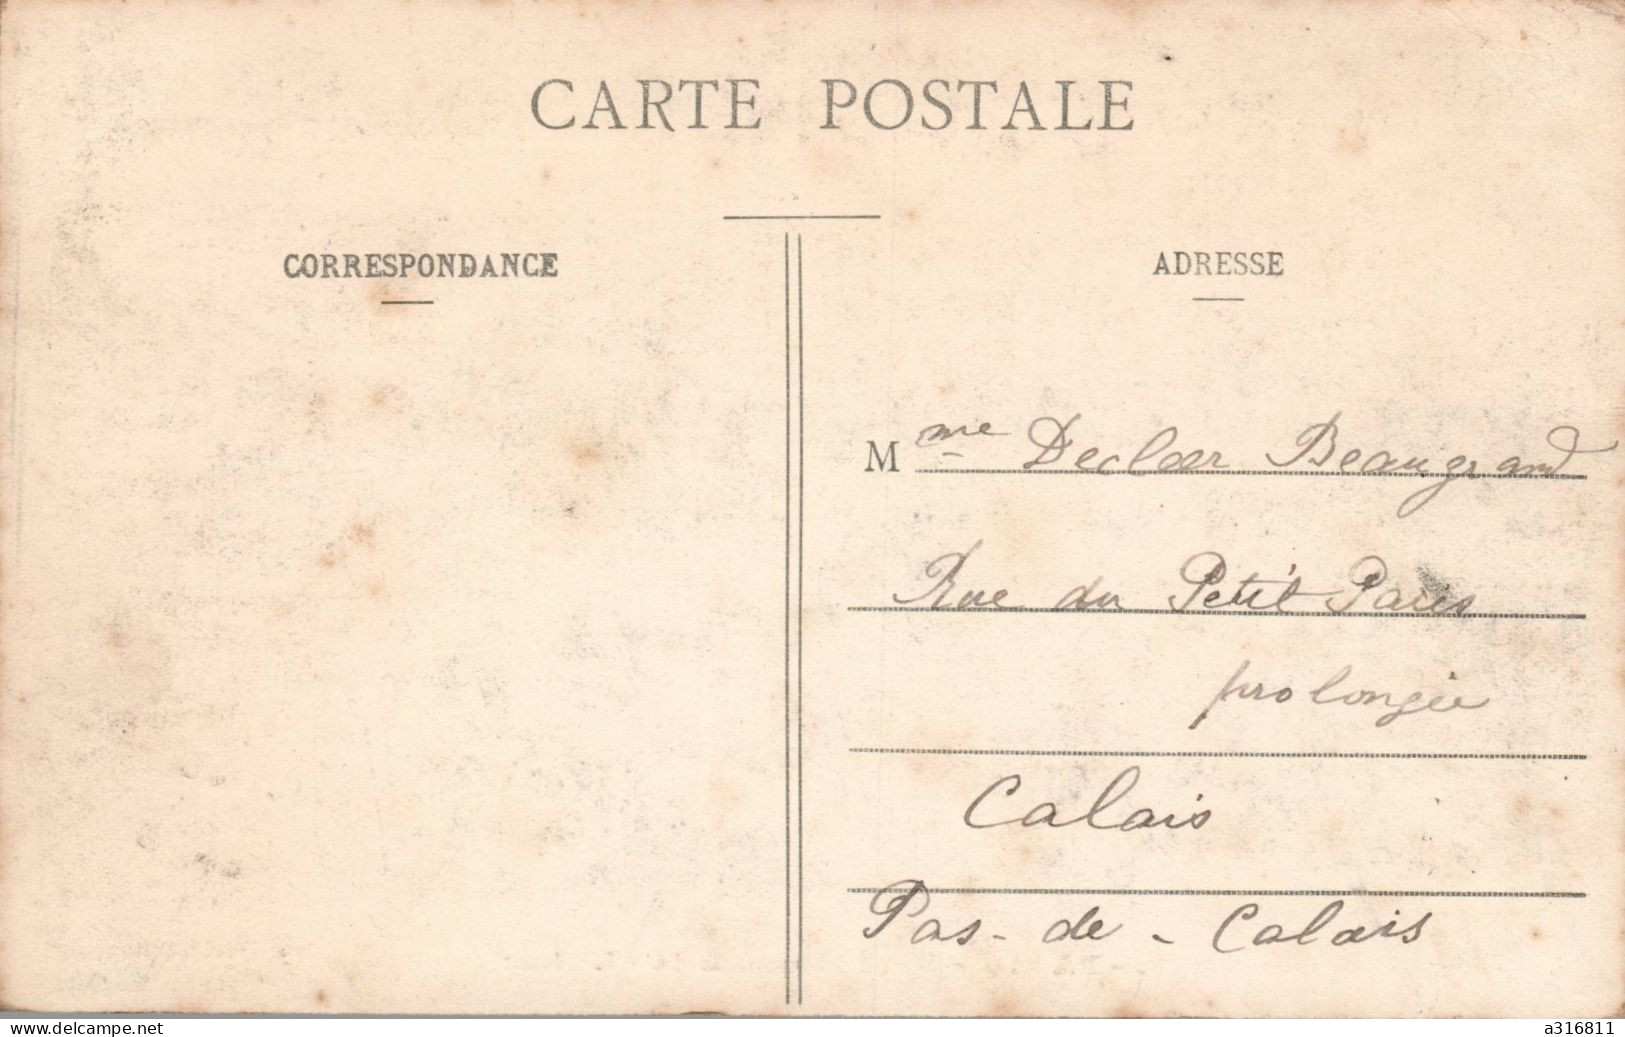 CARTE POSTALE
CORRESPONDANCE
ADRESSE
Mme Decloer Beaugrand
Rue du Petit Paris
prolongée
Calais
Pas-de-Calais
www.delcampe.net
a316811